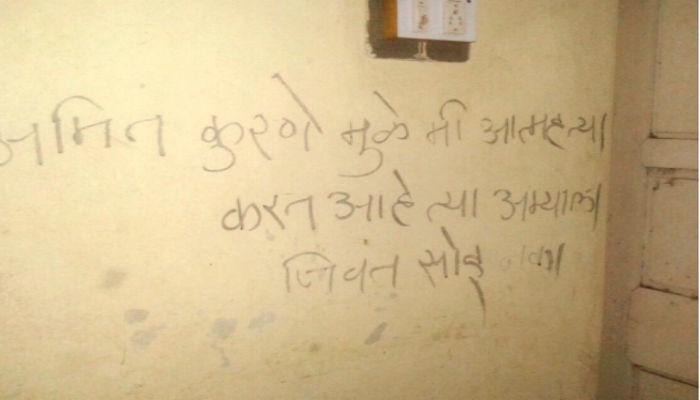 अमित कुरणे मुळे मी आत्महत्या
करत आहे त्या अम्याला
जिवत सोडू नका